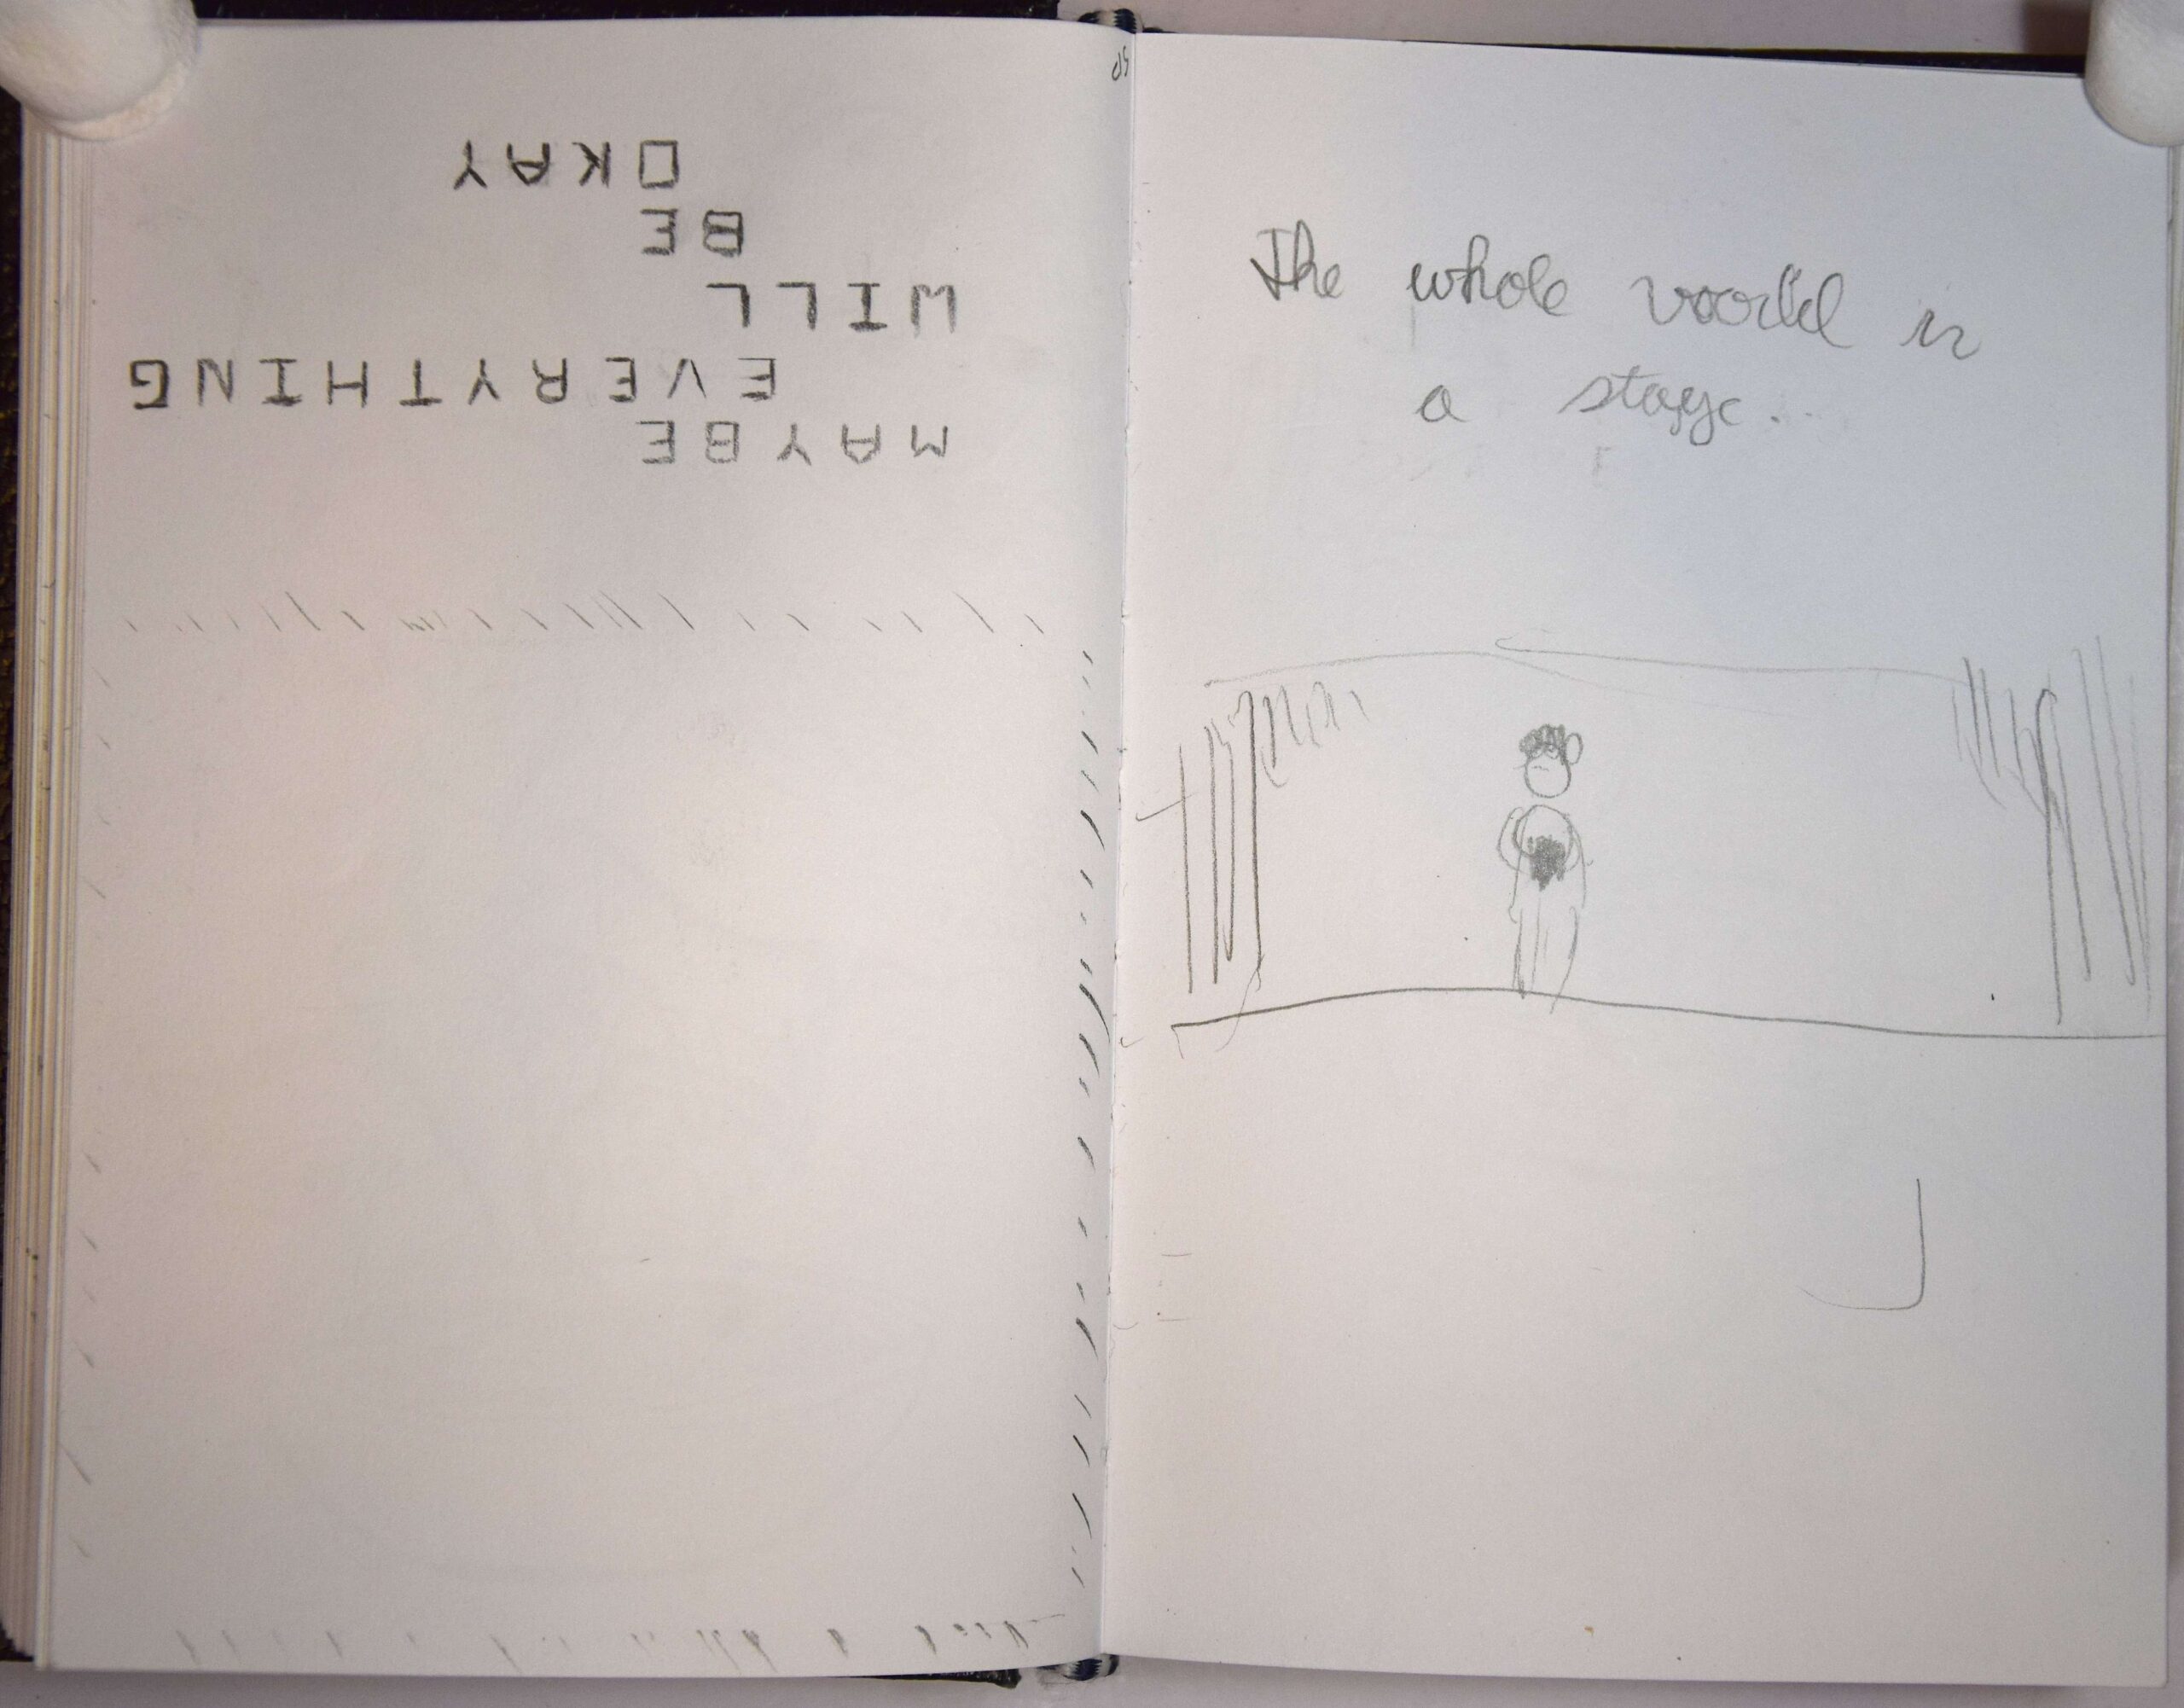 MAYBE
EVERYTHING
WILL
BE
OKAY
The whole world is
a stage...